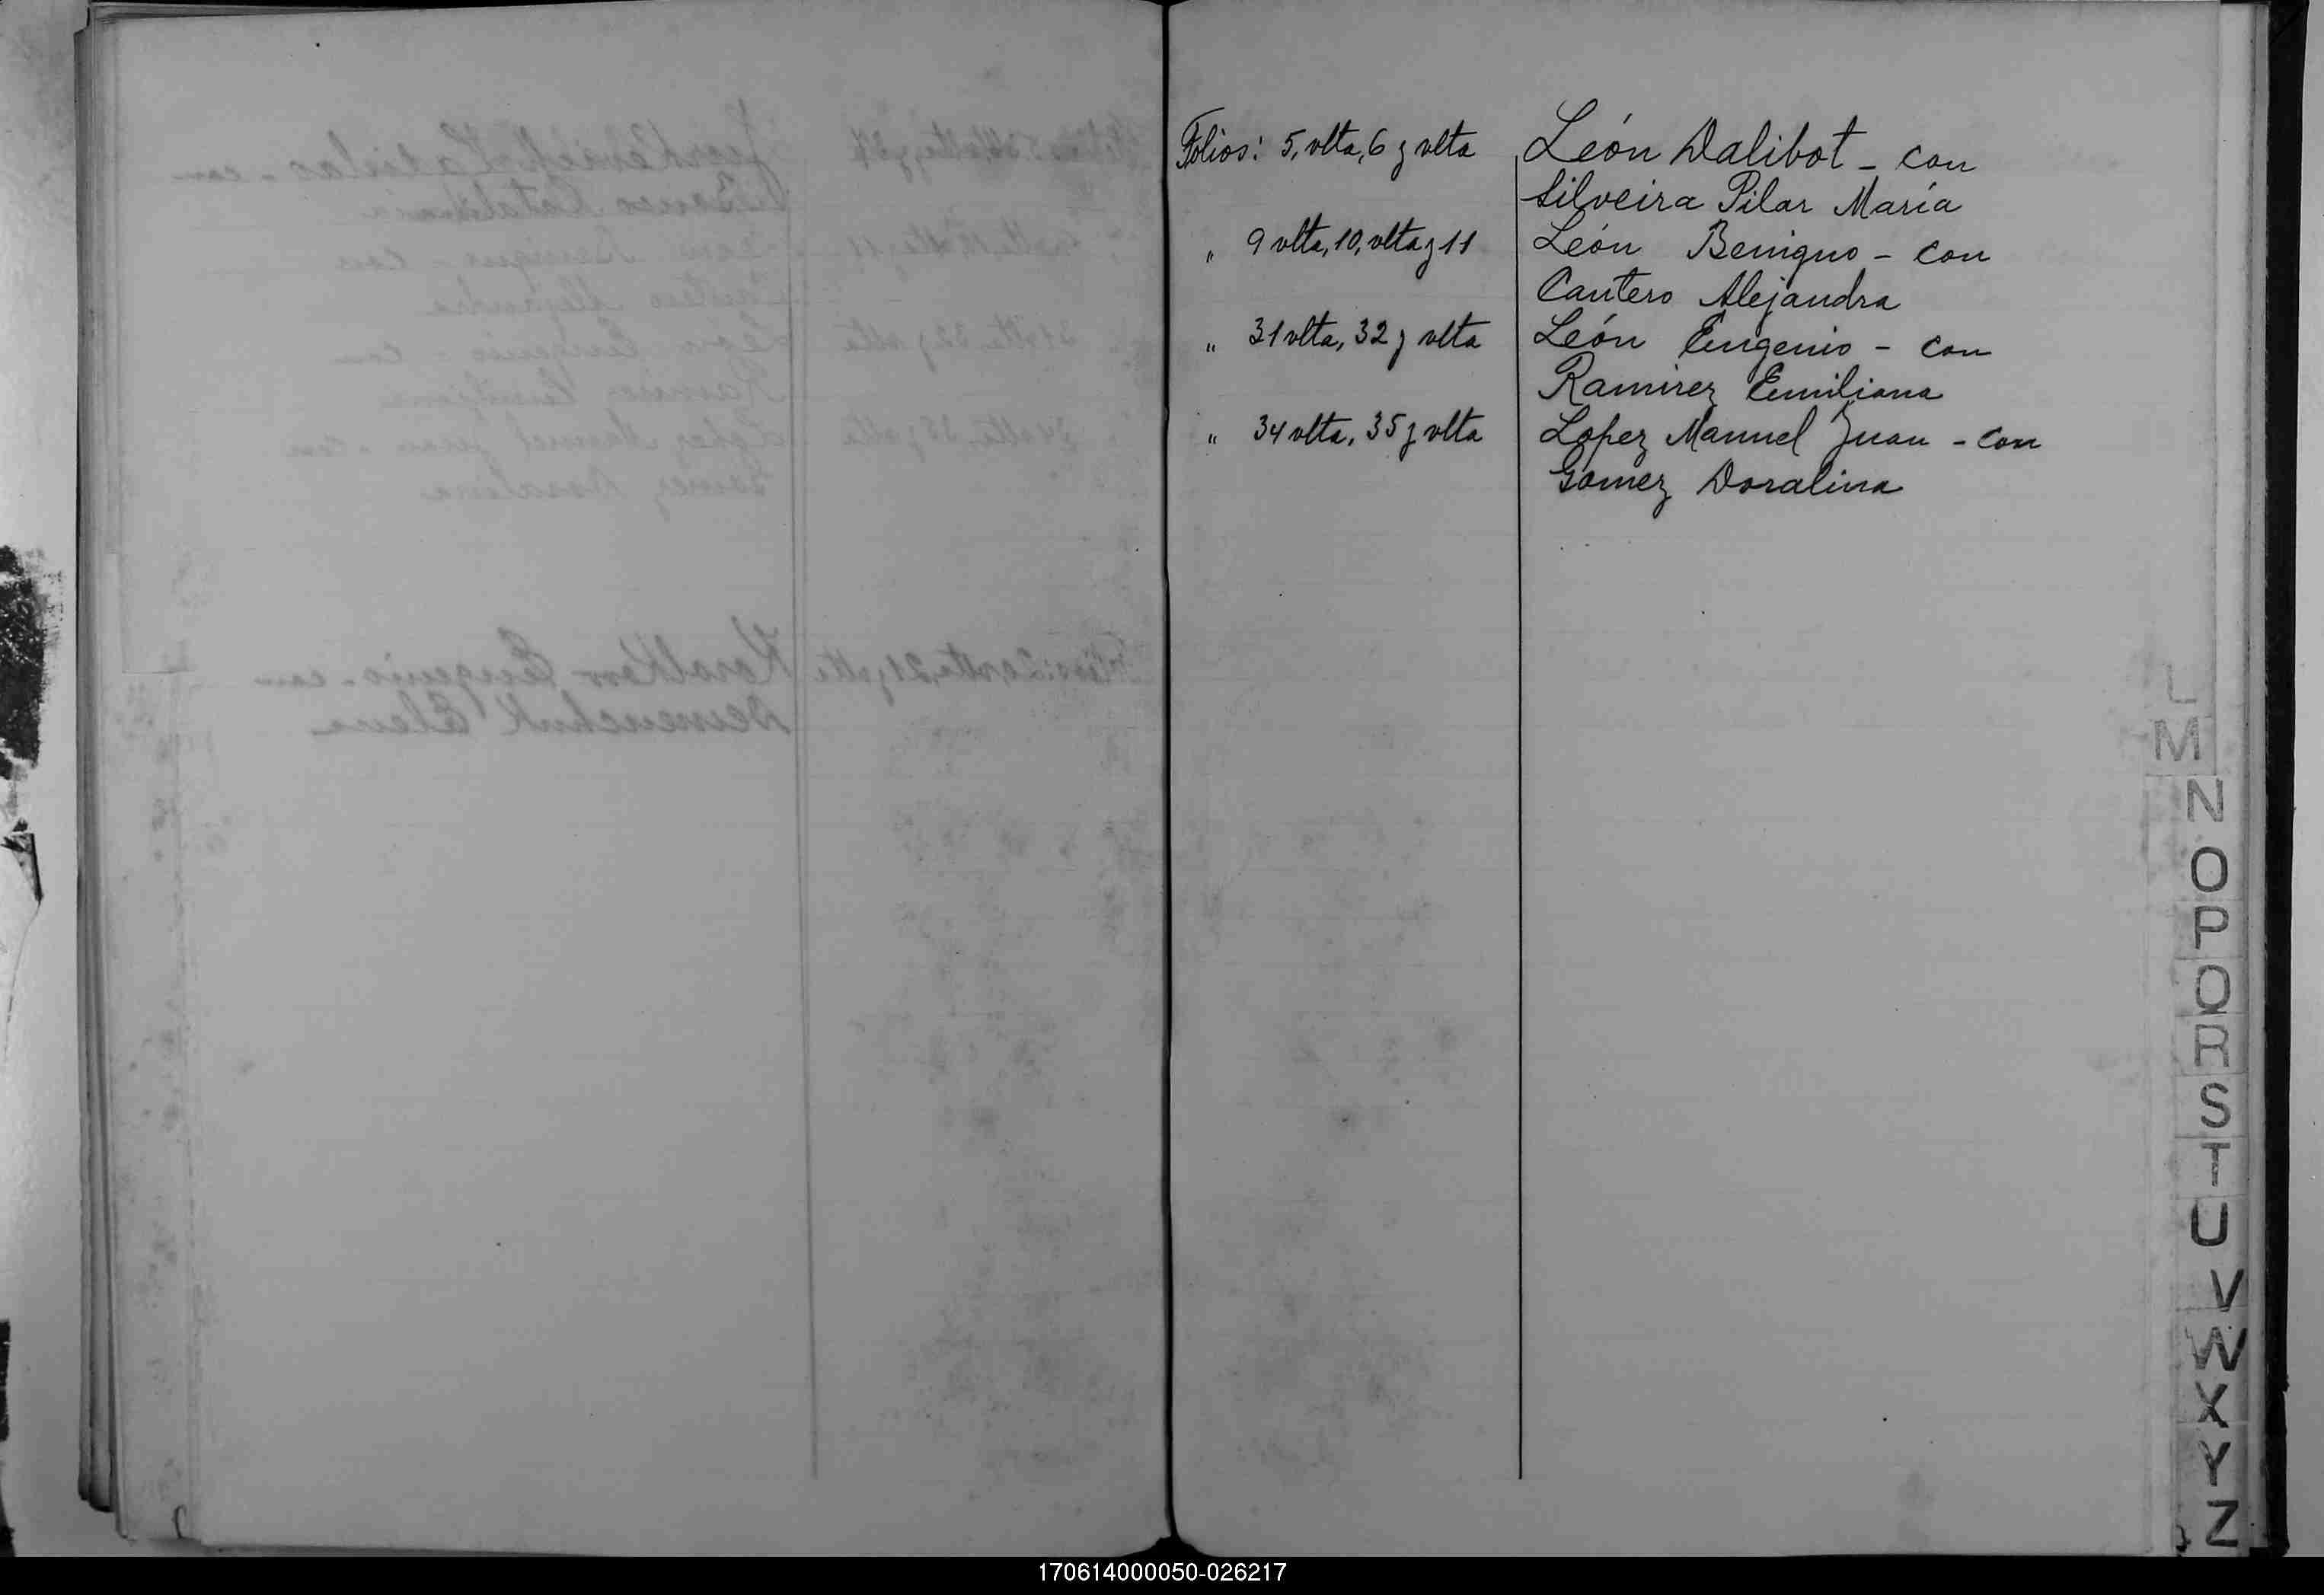 Folios: 5, vlta, 6 y vlta León Dalibot - con
Silveira Pilar María
" 9 vlta, 10, vlta y 11 León Benigno - con
Cantero Alejandra
" 31 vlta, 32 y vlta León Eugenio - con
Ramirez Emiliana
" 34 vlta, 35 y vlta Lopez Manuel Juan - con
Gomez Doralina
L
M
N
O
P
Q
R
S
T
U
V
W
X
Y
Z
170614000050-026217